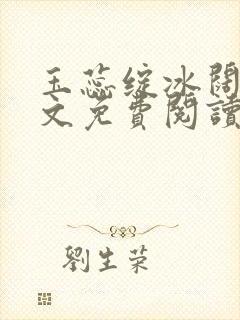 玉蕊綻冰閼
文免費閱讀
劉生荣